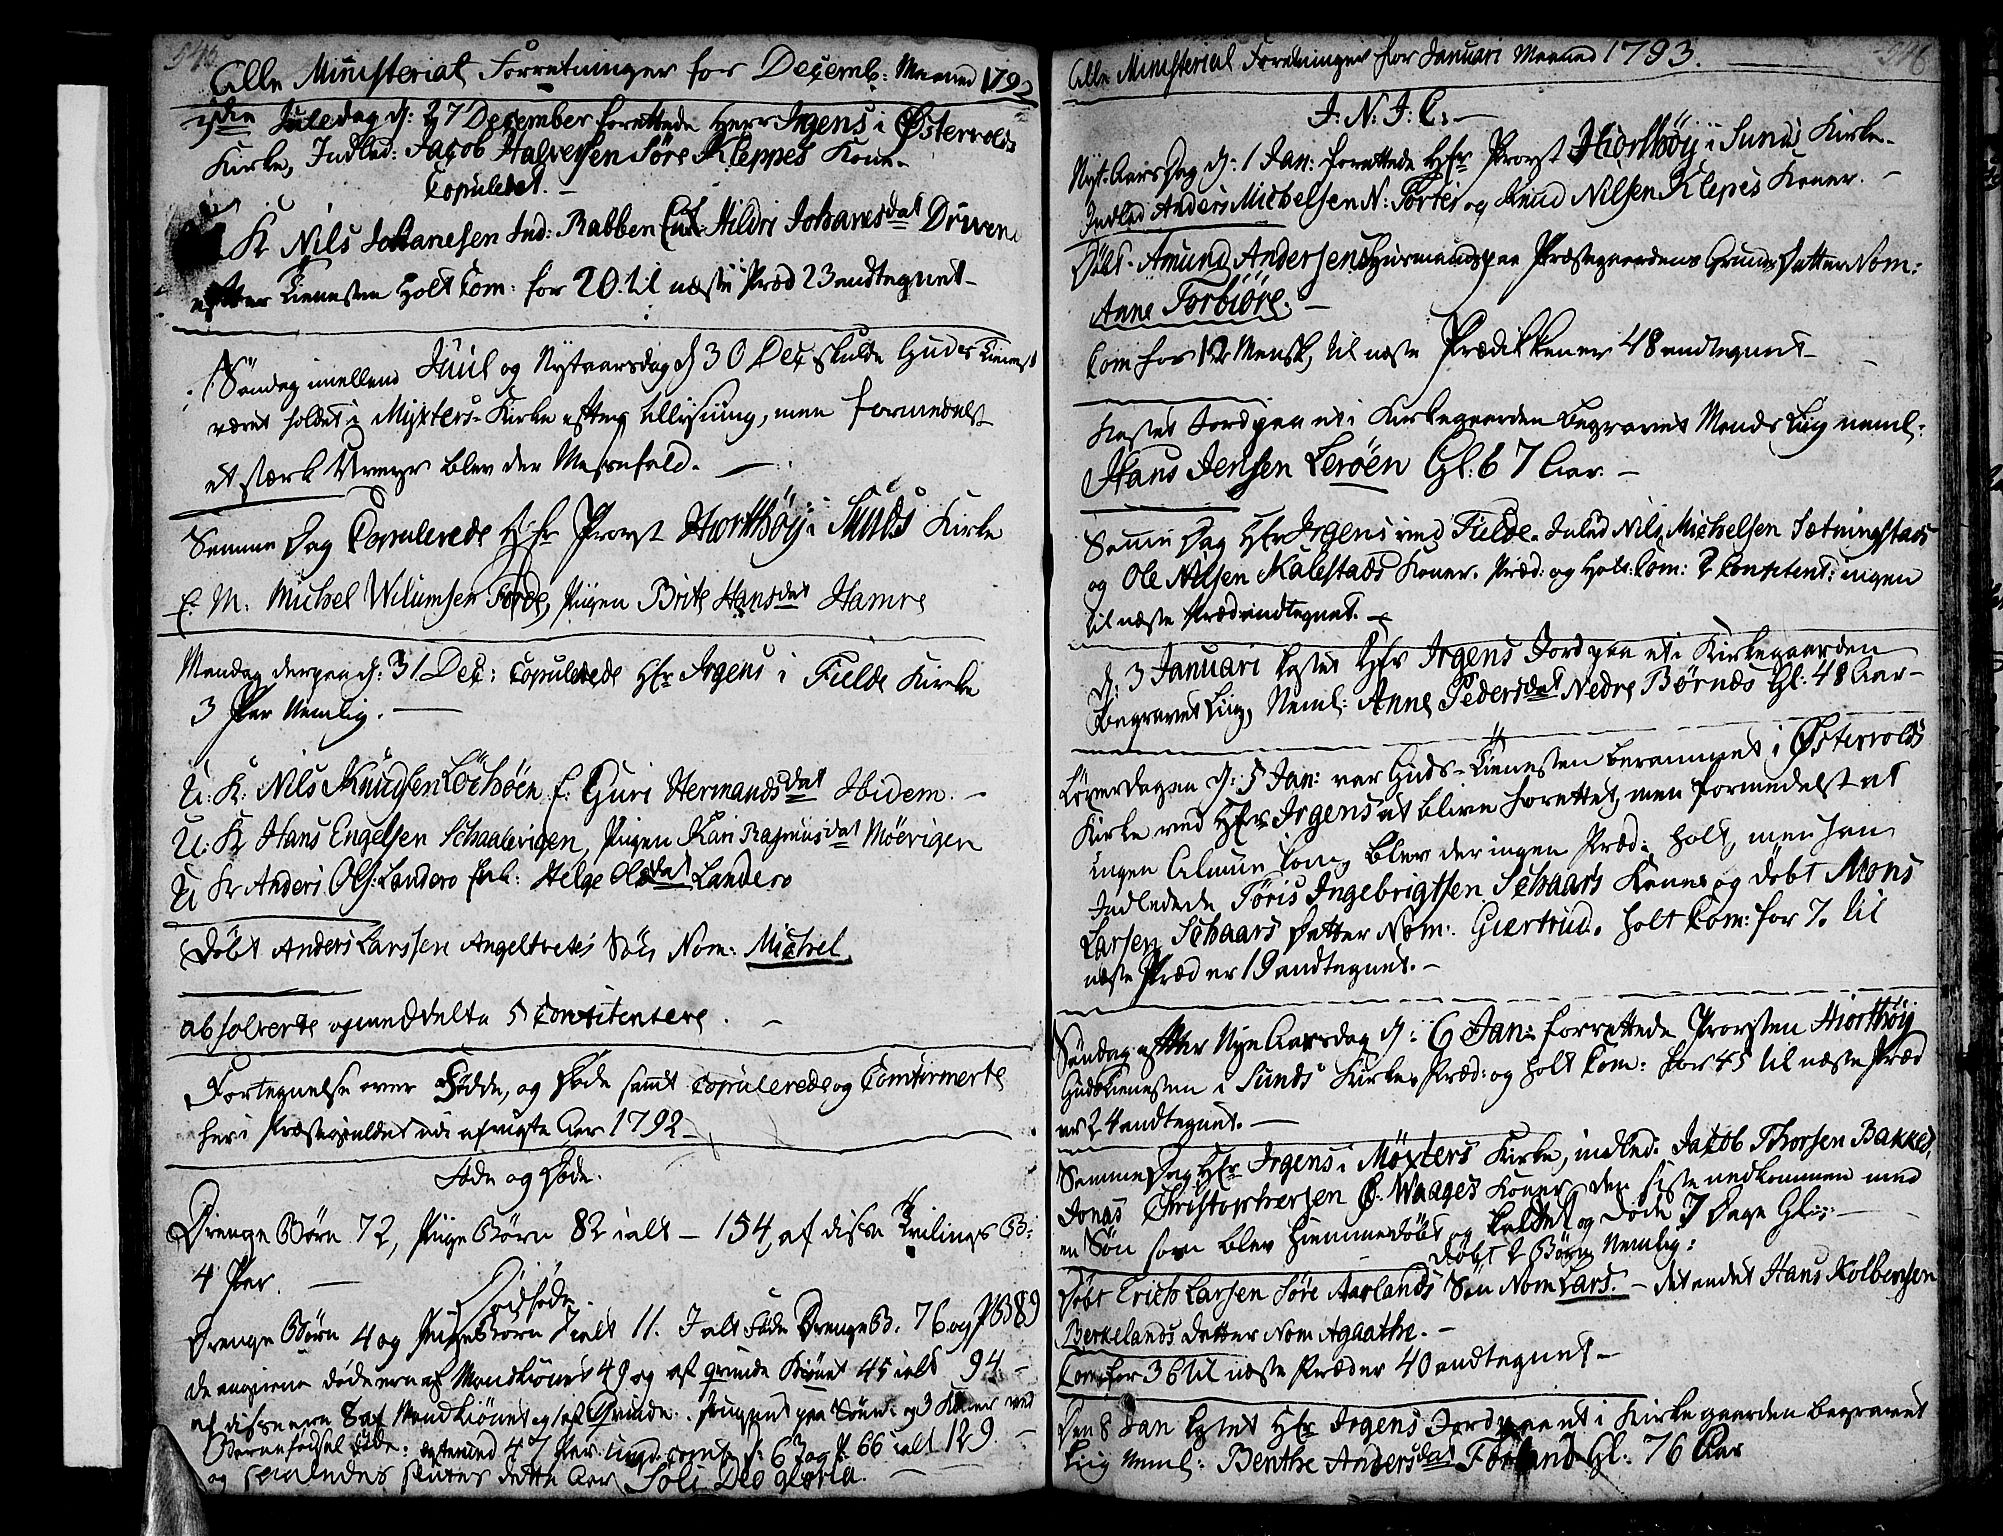 545
Alle Ministerial Forretninger for Decemb: Maaned 1792
3die Juledag d: 27 December forrettede Herr Irgens i Østervolds
Kirke, Indled: Jacob Halversen Søre Kleppes Kone.
Copuleret.
K Nils Johanesen Ind: Rabben Enk Hildri Johanesdat Drivene
efter Tienesten Holt Com: for 20. til næste Præd 23 andtegnet
Søndag imellem Juul og Nytaarsdag d 30 Dec skulde Guds Tienest
været holdet i Myxters Kirke efter tillysning, men formedelst
et stærk Uveyr blev der Messefald.
Samme Dag Copulerede Hr Provst Hiorthöy i Sunds Kirke
E. M. Michel Wilumsen Førde, Pigen Brite Hansdat Hamre
Mandag derpaa d: 31 Dec: Copulerede Hr Irgens i Fielde Kirke
3 Par Nemlig.
U. K: Nils Knudsen Löchöen E: Guri Hermandsdat Hidem.
U: K Hans Engelsen Schaalevigen, Pigen Kari Rasmusdat Møevigen
U K Anders Ols: Landero Enk: Helge Olsdat Landero
Døbt Anders Larssen Angeltveits Søn Nom: Michel
absolverte og meddelte 5 Confitentere.
Fortegnelse over Fødde, og Døde samt Copulerede og Comfirmerte
her i Præstegieldet udi afvigte Aar 1792
Føde og Døde.
Drenge Børn 72, Pige Børn 82 ialt 154, af disse Tvilings B:
4 Par.
Dødføde.
Drenge Børn 4 og Pige Børn 7 ialt 11. I alt Føde Drenge B. 76 og P B 89
de angivne døde ere af Mandkiönet 49 og af Qvinde Kiønet 45 ialt 94
af disse ere 8 af Mandkiönet og af Qvinde. paa Søen og 3 Koner ved
Barnefødsel døde: 47 Par. 63 og P. 66 ialt 129.
og saaledes slutes dette Aar Soli Deo gloria.
546
Alle Ministerial Forretninger for Januari Maaned 1793.
I. N. I. C.
Nyt-Aars Dag d: 1 Jan: forrettede Hr Provst Hiorthöy i Sunds Kirke
Indled Anders Michelsen N: Tortes og Knud Nilsen Klepes Koner.
Døbt Amund Andersens Huusmands paa Præstegaardens Grund Datter Nom:
Anne Torbiöre.
Com for 12 Mensk, til næste Prædikkener 48 andtegnet
Kastet Jord paa et i Kirkegaarden begravet Mands Liig neml:
Hans Jensen Lerøen Gl: 67 Aar.
Samme Dag Hr Irgens ved Fielde. Inled Nils Michelsen Sætningstads
og Ole Nilsen Kalestads Koner. Præd: og Holt Com: 2 Confitent: ingen
til næste Præd andtegnet.
D: 3 Januari kastet Hr Irgens Jord paa et i Kirkegaarden
begravet Liig, Neml: Anne Pedersdat Nedre Børnæs Gl: 48 Aar
Løverdagen d: 5 Jan: var Guds-Tienesten berammet i Østervolds
Kirke ved Hr Irgens at blive forrettet, men formedelst at
ingen Almue kom, blev der ingen Præd: holt, men han
Indledede Tøris Ingebrigtsen Schaars Kone og døbt Mons
Larsen Schaars Datter Nom: Giertrud. holt Com: for 7. til
næste Præd er 19 andtegnet.
Søndag efter Nye Aarsdag d: 6 Jan: forrettede Provsten Hiorthöy
Gudstienesten i Sunds Kirke, Præd: og holt Com: for 45 til næste Præd
er 24 andtegnet.
Samme Dag Hr Irgens i Møxters Kirke, indled: Jacob Thorsen Bakkes,
Jonas Christophersen C. Waages Koner, den siste nedkommen med
en Søn som blev hiemmedøbt og kaldet og Døde 7 Dage Gl:
Døbt 2 Børn Nemlig:
Døbt Erich Larsen Søre Aarlands Søn Nom Lars. det andet Hans Kolbensen
Berkelands datter Nom Agaathe.
Com for 36 til næste Præd er 40 andtegnet
Den 8 Jan kastet Hr Irgens Jord paa et i Kirkegaarden begravet
Liig Neml: Benthe Andersdat Forland Gl: 76 Aar